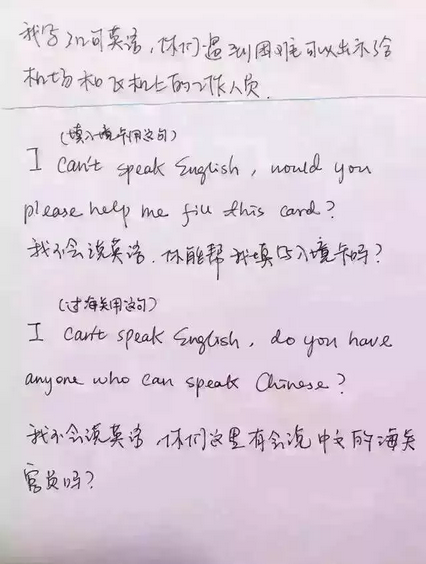 我写了几句英语，你们遇到困难可以出示给
机场和飞机上的工作人员.
(填入境卡用这句)
I can't speak English, would you
please help me fill this card?
我不会说英语.你能帮我填写入境卡吗?
(过海关用这句)
I can't speak English, do you have
anyone who can speak Chinese?
我不会说英语,你们这里有会说中文的海关
官员吗?